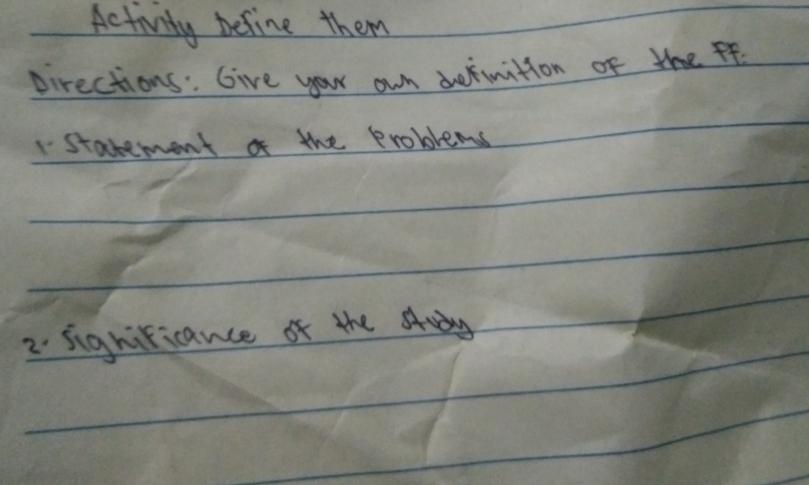 Activity Define them
Directions: Give your own definition of the FF:
1. Statement of the Problems
2. Significance of the study